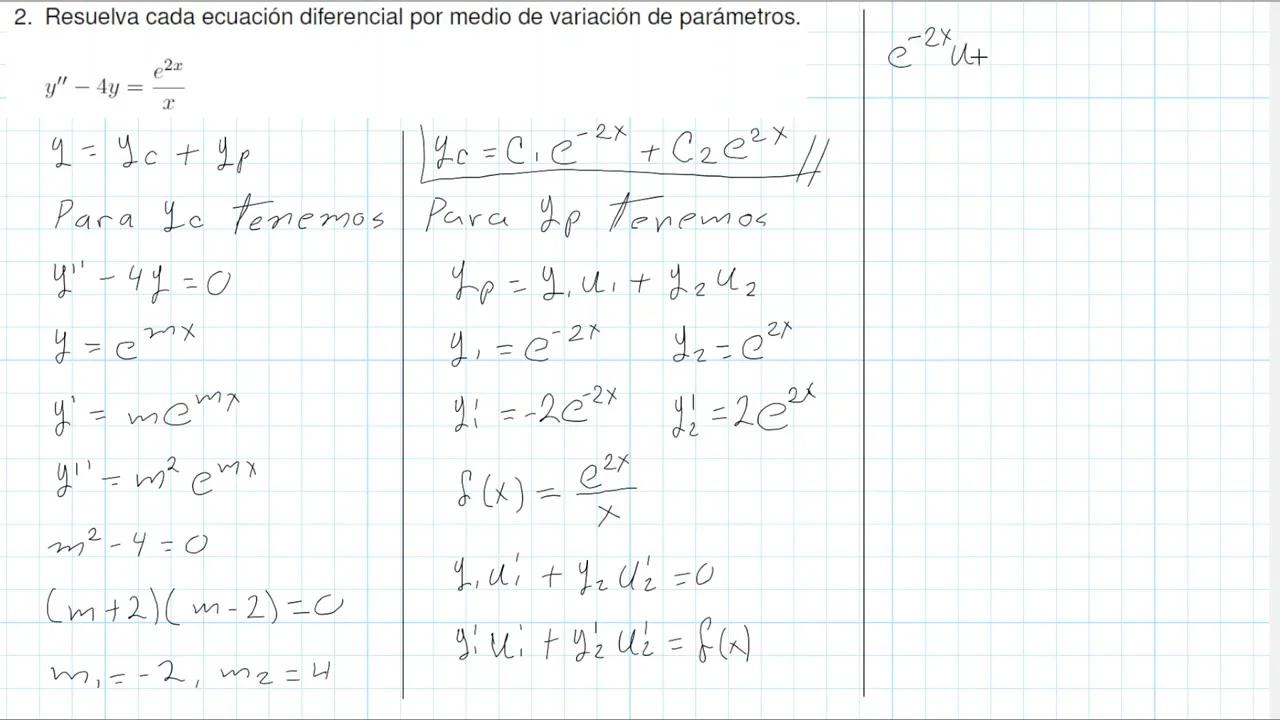 2. Resuelva cada ecuación diferencial por medio de variación de parámetros.
y'' − 4y = e^{2x}/x
y = yc + yp
Para yc tenemos
y'' − 4y = 0
y = e^{mx}
y' = me^{mx}
y'' = m² e^{mx}
m² − 4 = 0
(m+2)(m−2) = 0
m₁ = −2, m₂ = 4
yc = C₁e^{−2x} + C₂e^{2x} //
Para yp tenemos
yp = y₁u₁ + y₂u₂
y₁ = e^{−2x} y₂ = e^{2x}
y₁' = −2e^{−2x} y₂' = 2e^{2x}
f(x) = e^{2x}/x
y₁u₁' + y₂u₂' = 0
y₁'u₁' + y₂'u₂' = f(x)
e^{−2x}u+